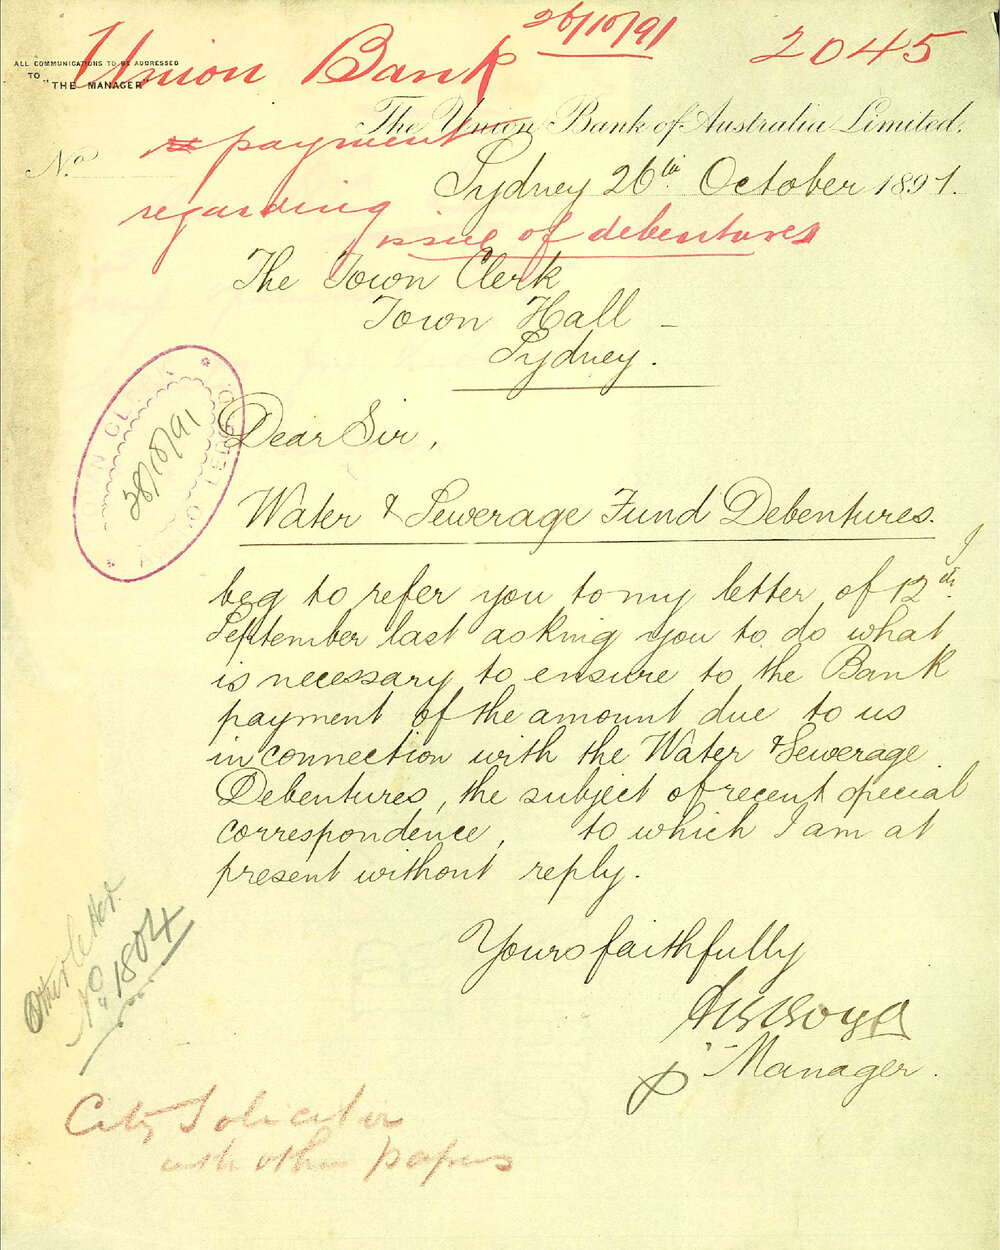 26/10/91
2045
Union Bank
ALL COMMUNICATIONS TO BE ADDRESSED
TO "THE MANAGER"
The Union Bank of Australia Limited.
re payment
No
Sydney 26th October 1891.
regarding
issue of debentures
The Town Clerk
Town Hall –
Sydney.
TOWN CLERK
28/10/91
Dear Sir,
Water & Sewerage Fund Debentures.
I
beg to refer you to my letter of 12th
September last asking you to do what
is necessary to ensure to the Bank
payment of the amount due to us
in connection with the Water & Sewerage
Debentures, the subject of recent special
correspondence, to which I am at
present without reply.
Yours faithfully
p Manager.
Other letter
No. 1804
City Solicitor
with other papers